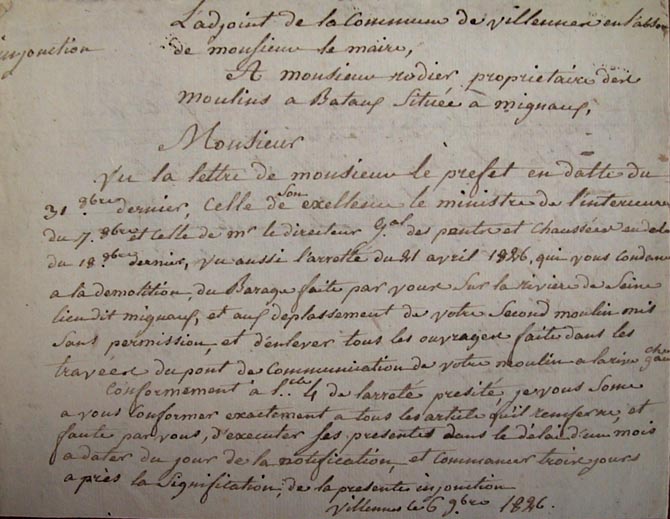 injonction
L'adjoint de la Commune de villennes en l'absen
de monsieur le maire,
A monsieur rodier propriétaire des
moulins a Bataux Située à mignaux,
Monsieur
Vu la lettre de monsieur le prefet en datte du
31 8bre dernier, Celle de son exellence le ministre de l'interieure
du 7. 8bre et Celle de mr le directeur gal des ponts et chaussées en datte
du 18. 8bre dernier, vu aussi l'arrotté du 21 avril 1826, qui vous condane
a la demolition, du Barage faite par vous sur la riviere de Seine
lieu dit mignaux, et aux deplassement de votre Second moulin mis
sans permission, et d'enlever tous les ouvrages faite dans les
travées du pont de Communication de votre moulin a la rive gche
Conformement à l' 4 de larroté presité, je vous Some
a vous Conformer exactement a tous les article qu'il renferme, et
faute par vous, d'executer ses presentes dans le délai d'un mois
a dater du jour de la notification, et commancer trois jours
après la Signification, de la presente injonction
Villennes le 6 9bre 1826.